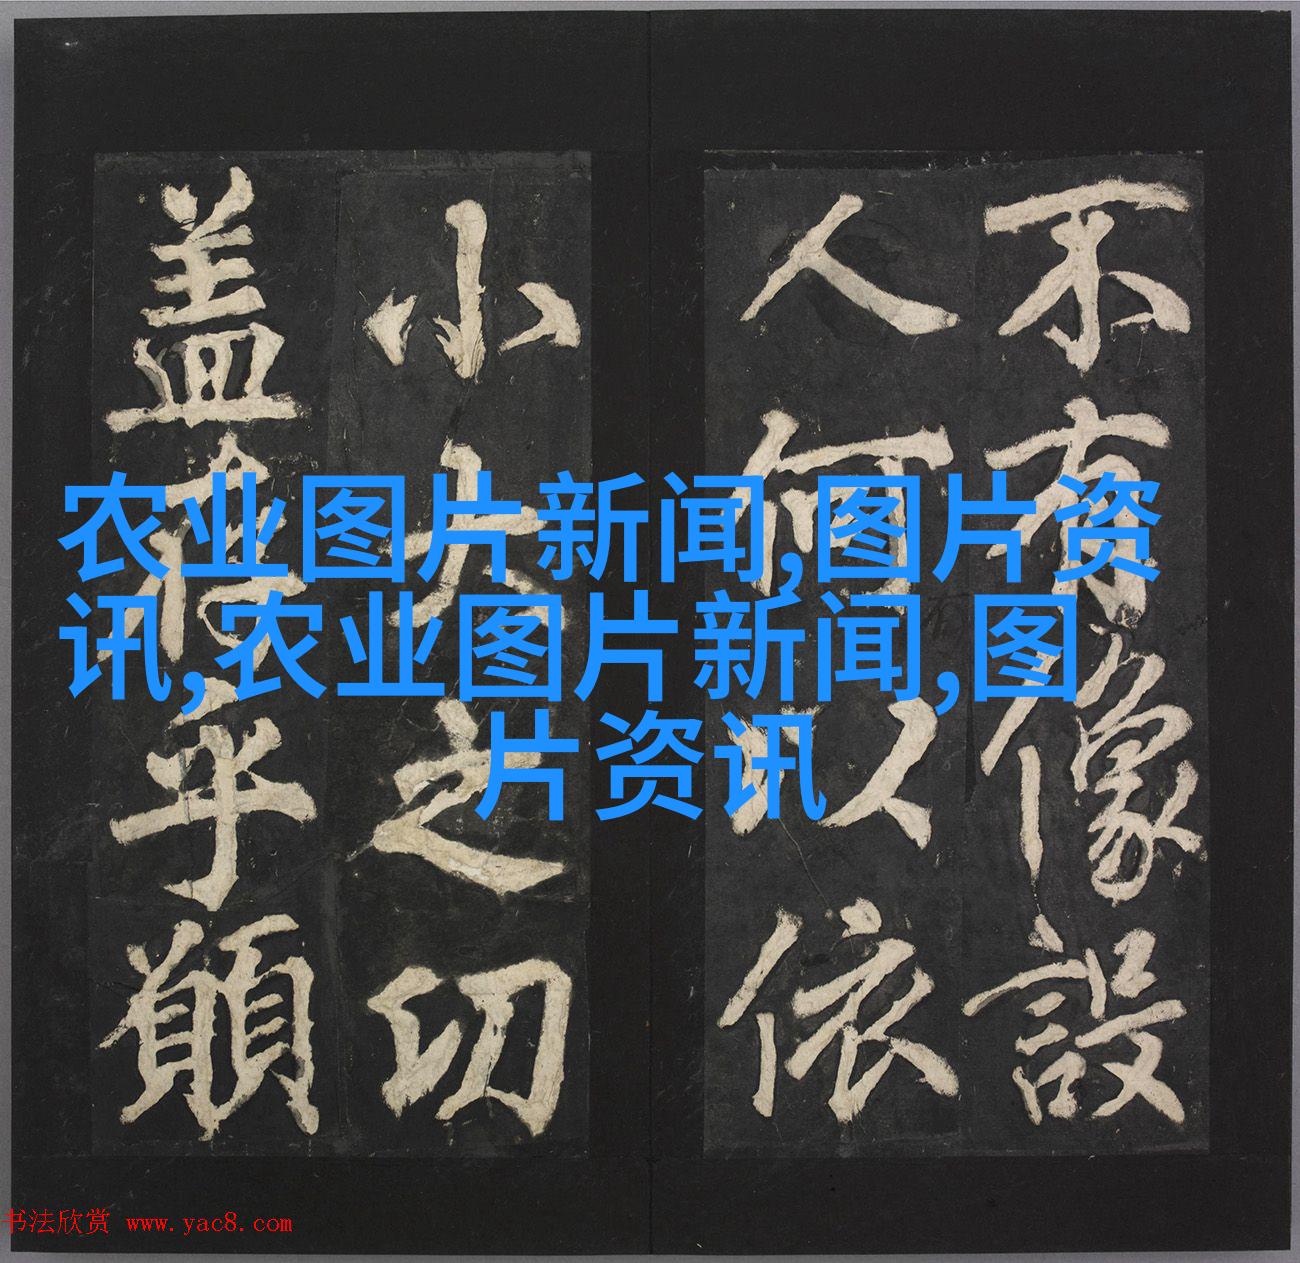 不有像設
人何以依
小大之切
盖存乎願
农业图片新闻,图片资
讯,农业图片新闻,图
片资讯
书法欣赏 www.yac8.com